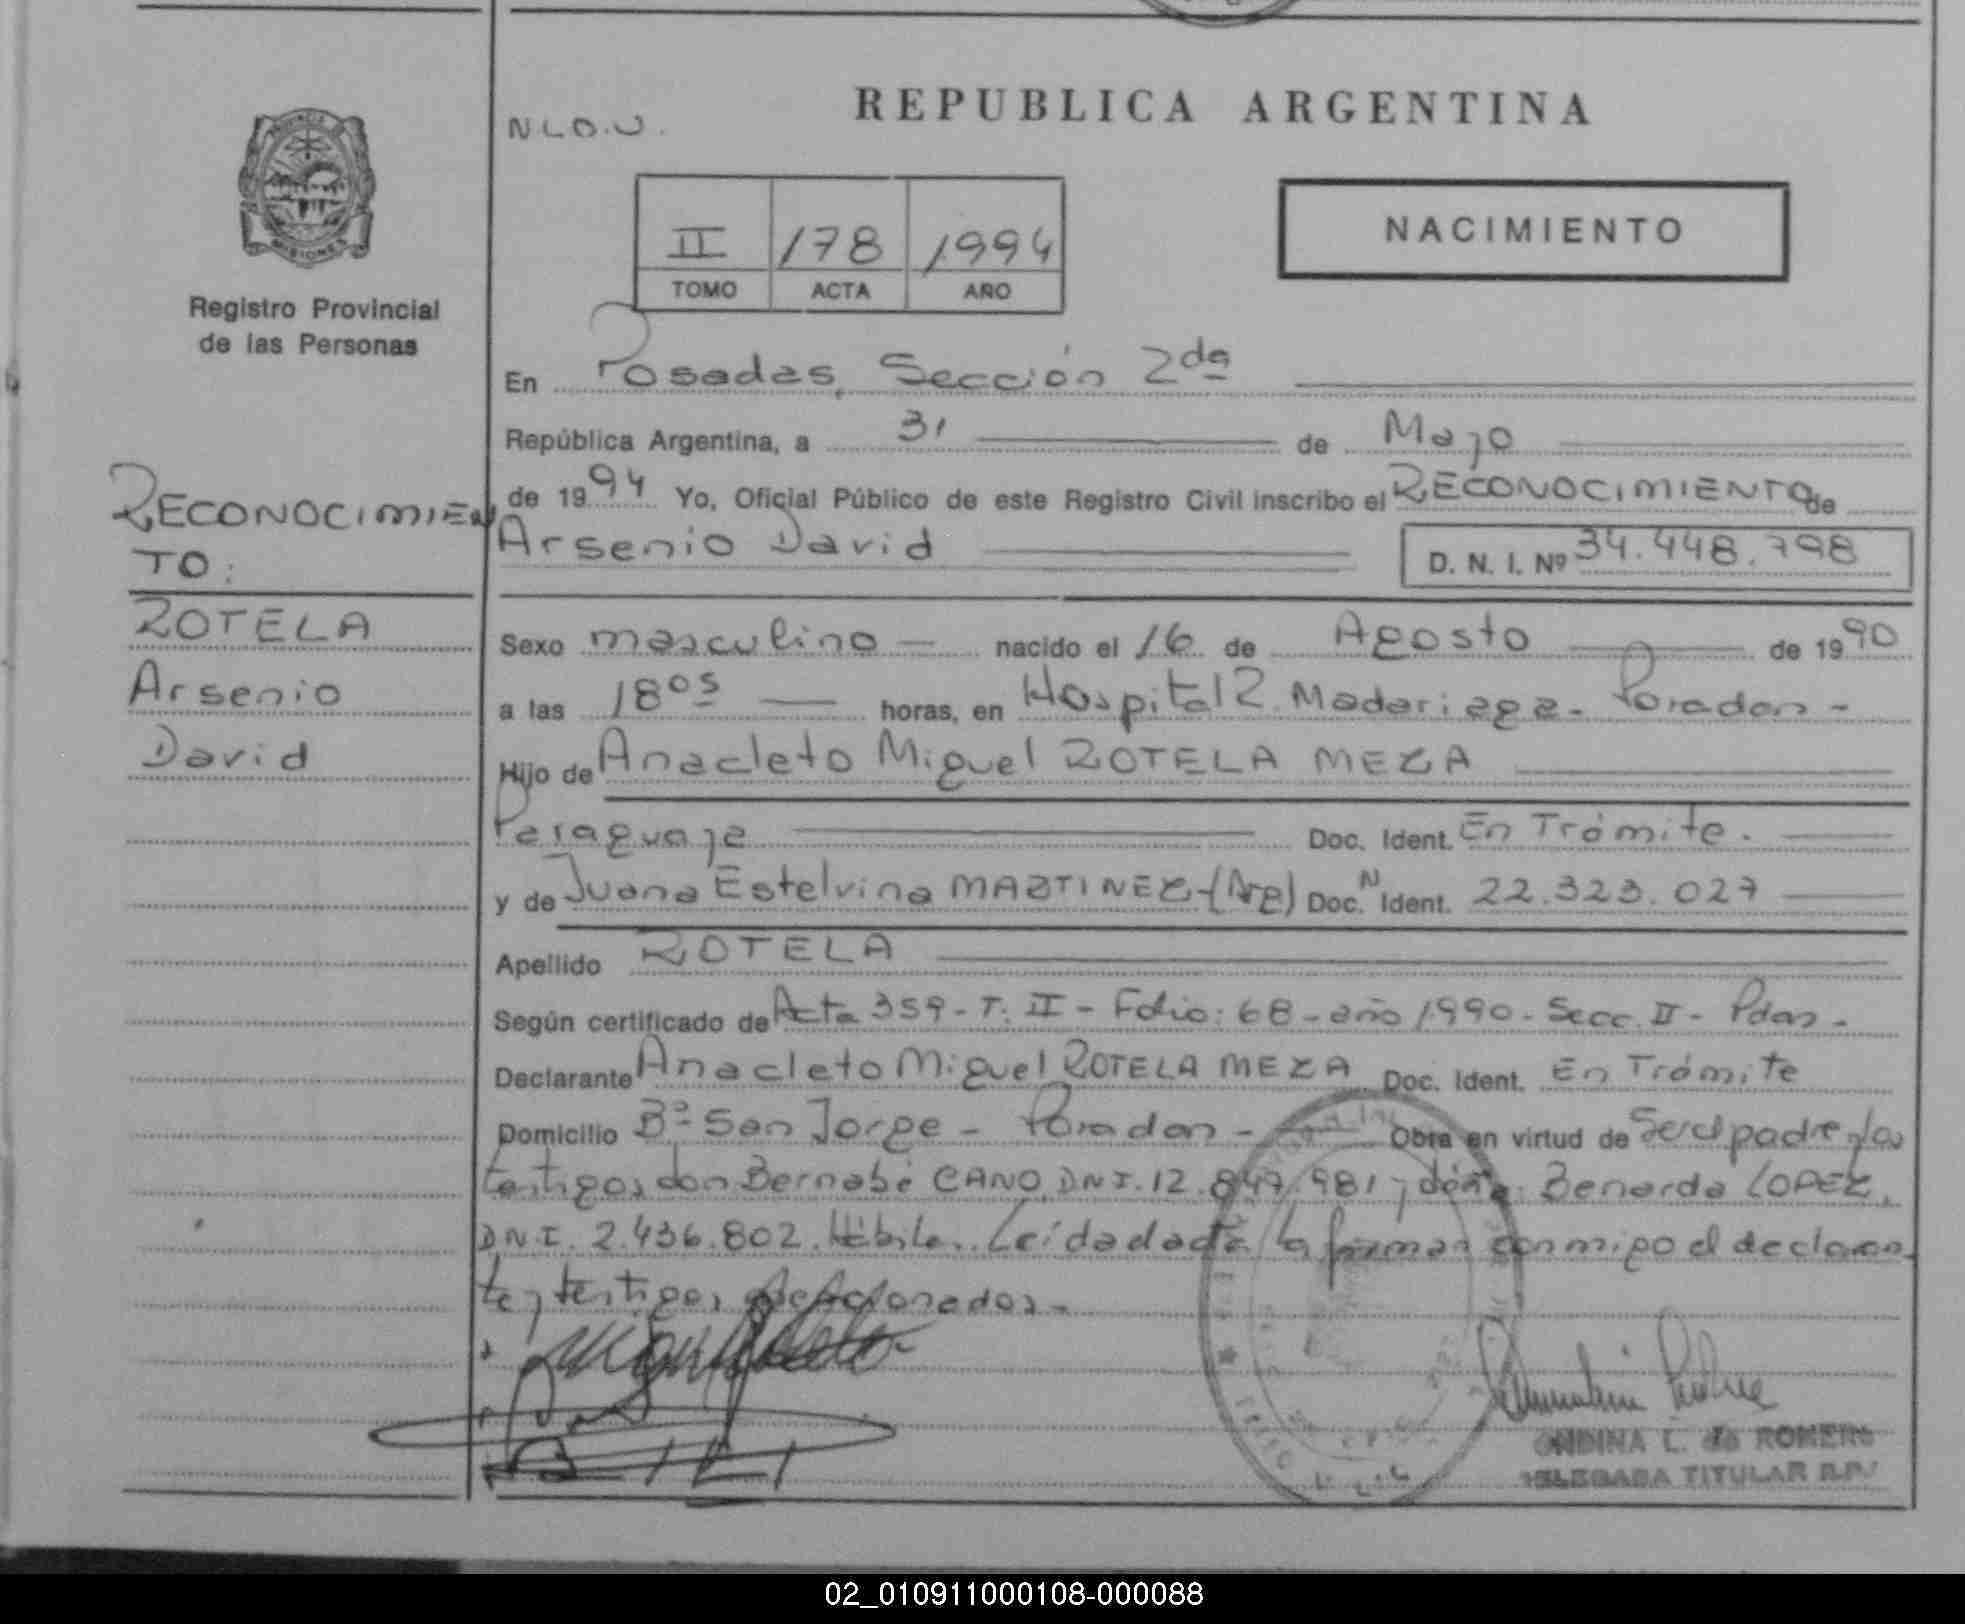 REPUBLICA ARGENTINA
N.L.O.U.
NACIMIENTO
II 178 1994
TOMO ACTA AÑO
PROVINCIA DE MISIONES
Registro Provincial
de las Personas
En Posadas, Sección 2da
República Argentina, a 31 de Mayo
de 1994 Yo, Oficial Público de este Registro Civil inscribo el RECONOCIMIENTO de
Arsenio David D. N. I. Nº 34.448.798
RECONOCIMIEN
TO:
ROTELA
Arsenio
David
Sexo masculino — nacido el 16 de Agosto de 1990
a las 18 os — horas, en Hospital R. Madariaga - Posadas -
Hijo de Anacleto Miguel ROTELA MEZA
Paraguaya Doc. Ident. En Trámite.
y de Juana Estelvina MARTINEZ - (Arg) Doc. N Ident. 22.323.027
Apellido ROTELA
Según certificado de Acta 359 - T: II - Folio: 68 - año 1990 - Secc. II - Pdas -
Declarante Anacleto Miguel ROTELA MEZA Doc. Ident. En Trámite
Domicilio Bº San Jorge - Posadas - Obra en virtud de Ser el padre y los
testigos don Bernabé CANO, DNI. 12.847.981 y doña Benarda LOPEZ,
DNI. 2.436.802. Hábiles. Leída el acta la firman conmigo el declaran-
te y testigos
ONDINA L. de ROMERO
DELEGADA TITULAR R.P.
02_010911000108-000088